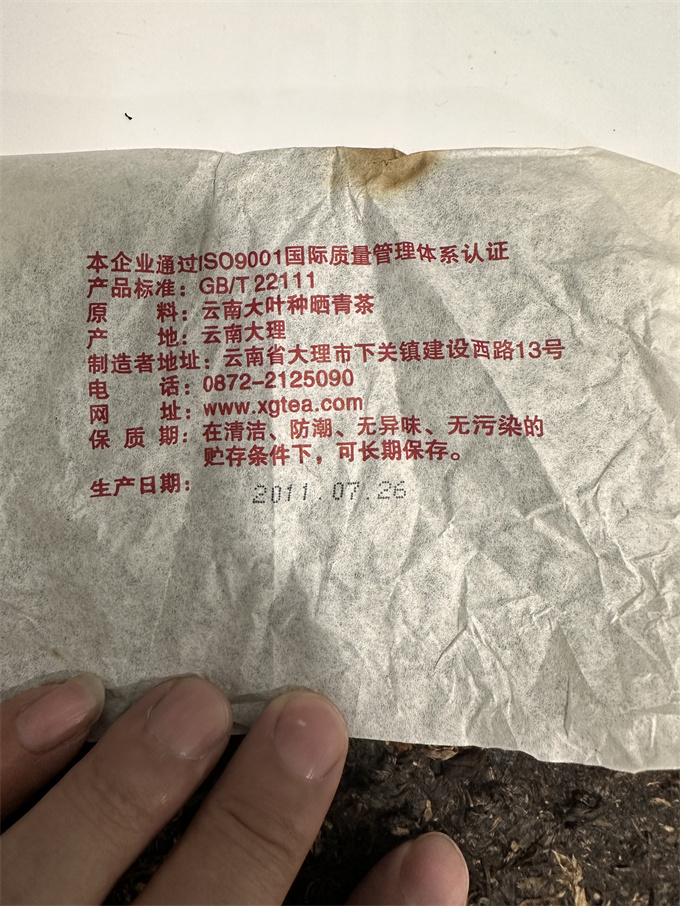 本企业通过ISO9001国际质量管理体系认证
产品标准：GB/T 22111
原　　料：云南大叶种晒青茶
产　　地：云南大理
制造者地址：云南省大理市下关镇建设西路13号
电　　话：0872-2125090
网　　址：www.xgtea.com
保 质 期：在清洁、防潮、无异味、无污染的
贮存条件下，可长期保存。
生产日期：2011.07.26